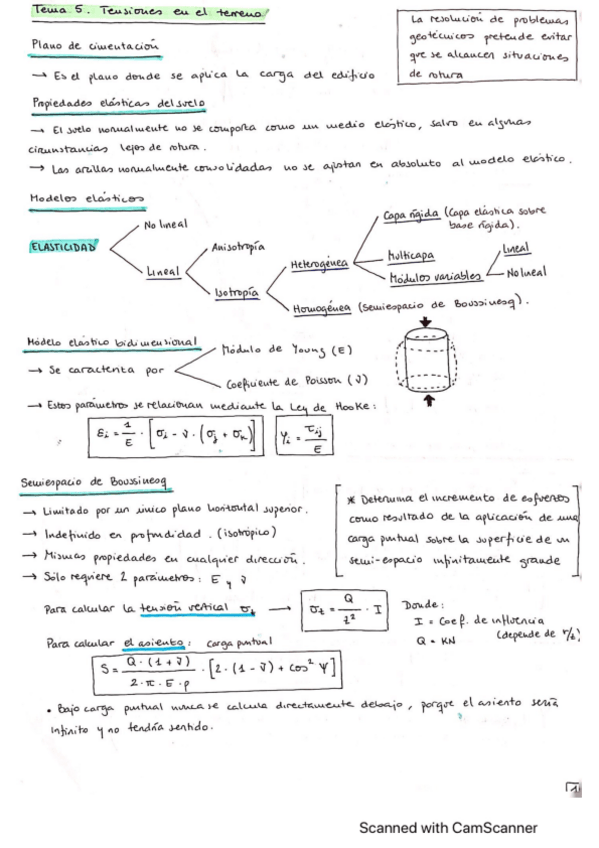 Tema 5. Tensiones en el terreno
La resolución de problemas
geotécnicos pretende evitar
que se alcancen situaciones
de rotura
Plano de cimentación
→ Es el plano donde se aplica la carga del edificio
Propiedades elásticas del suelo
→ El suelo normalmente no se comporta como un medio elástico, salvo en algunas
circunstancias lejos de rotura.
→ Las arcillas normalmente consolidadas no se ajustan en absoluto al modelo elástico.
Modelos elásticos
ELASTICIDAD
No lineal
Lineal
Anisotropía
Isotropía
Heterogénea
Homogénea (Semiespacio de Boussinesq).
Capa rígida (Capa elástica sobre
base rígida).
Multicapa
Módulos variables
Lineal
No lineal
Módelo elástico bidimensional
→ Se caracteriza por
Módulo de Young (E)
Coeficiente de Poisson (ν)
→ Estos parámetros se relacionan mediante la Ley de Hooke:
εi = 1/E · [σi - ν · (σj + σk)]
γi = τij/E
Semiespacio de Boussinesq
→ Limitado por un único plano horizontal superior.
→ Indefinido en profundidad. (isotrópico)
→ Mismas propiedades en cualquier dirección.
→ Sólo requiere 2 parámetros: E y ν
* Determina el incremento de esfuerzos
como resultado de la aplicación de una
carga puntual sobre la superficie de un
semi-espacio infinitamente grande
Para calcular la tensión vertical σz → σz = Q/z² · I
Donde:
I = Coef. de influencia
(depende de r/z)
Q = KN
Para calcular el asiento: carga puntual
S = Q · (1 + ν) / 2 · π · E · ρ · [2 · (1 - ν) + cos² ψ]
• Bajo carga puntual nunca se calcula directamente debajo, porque el asiento sería
infinito y no tendría sentido.
1
Scanned with CamScanner